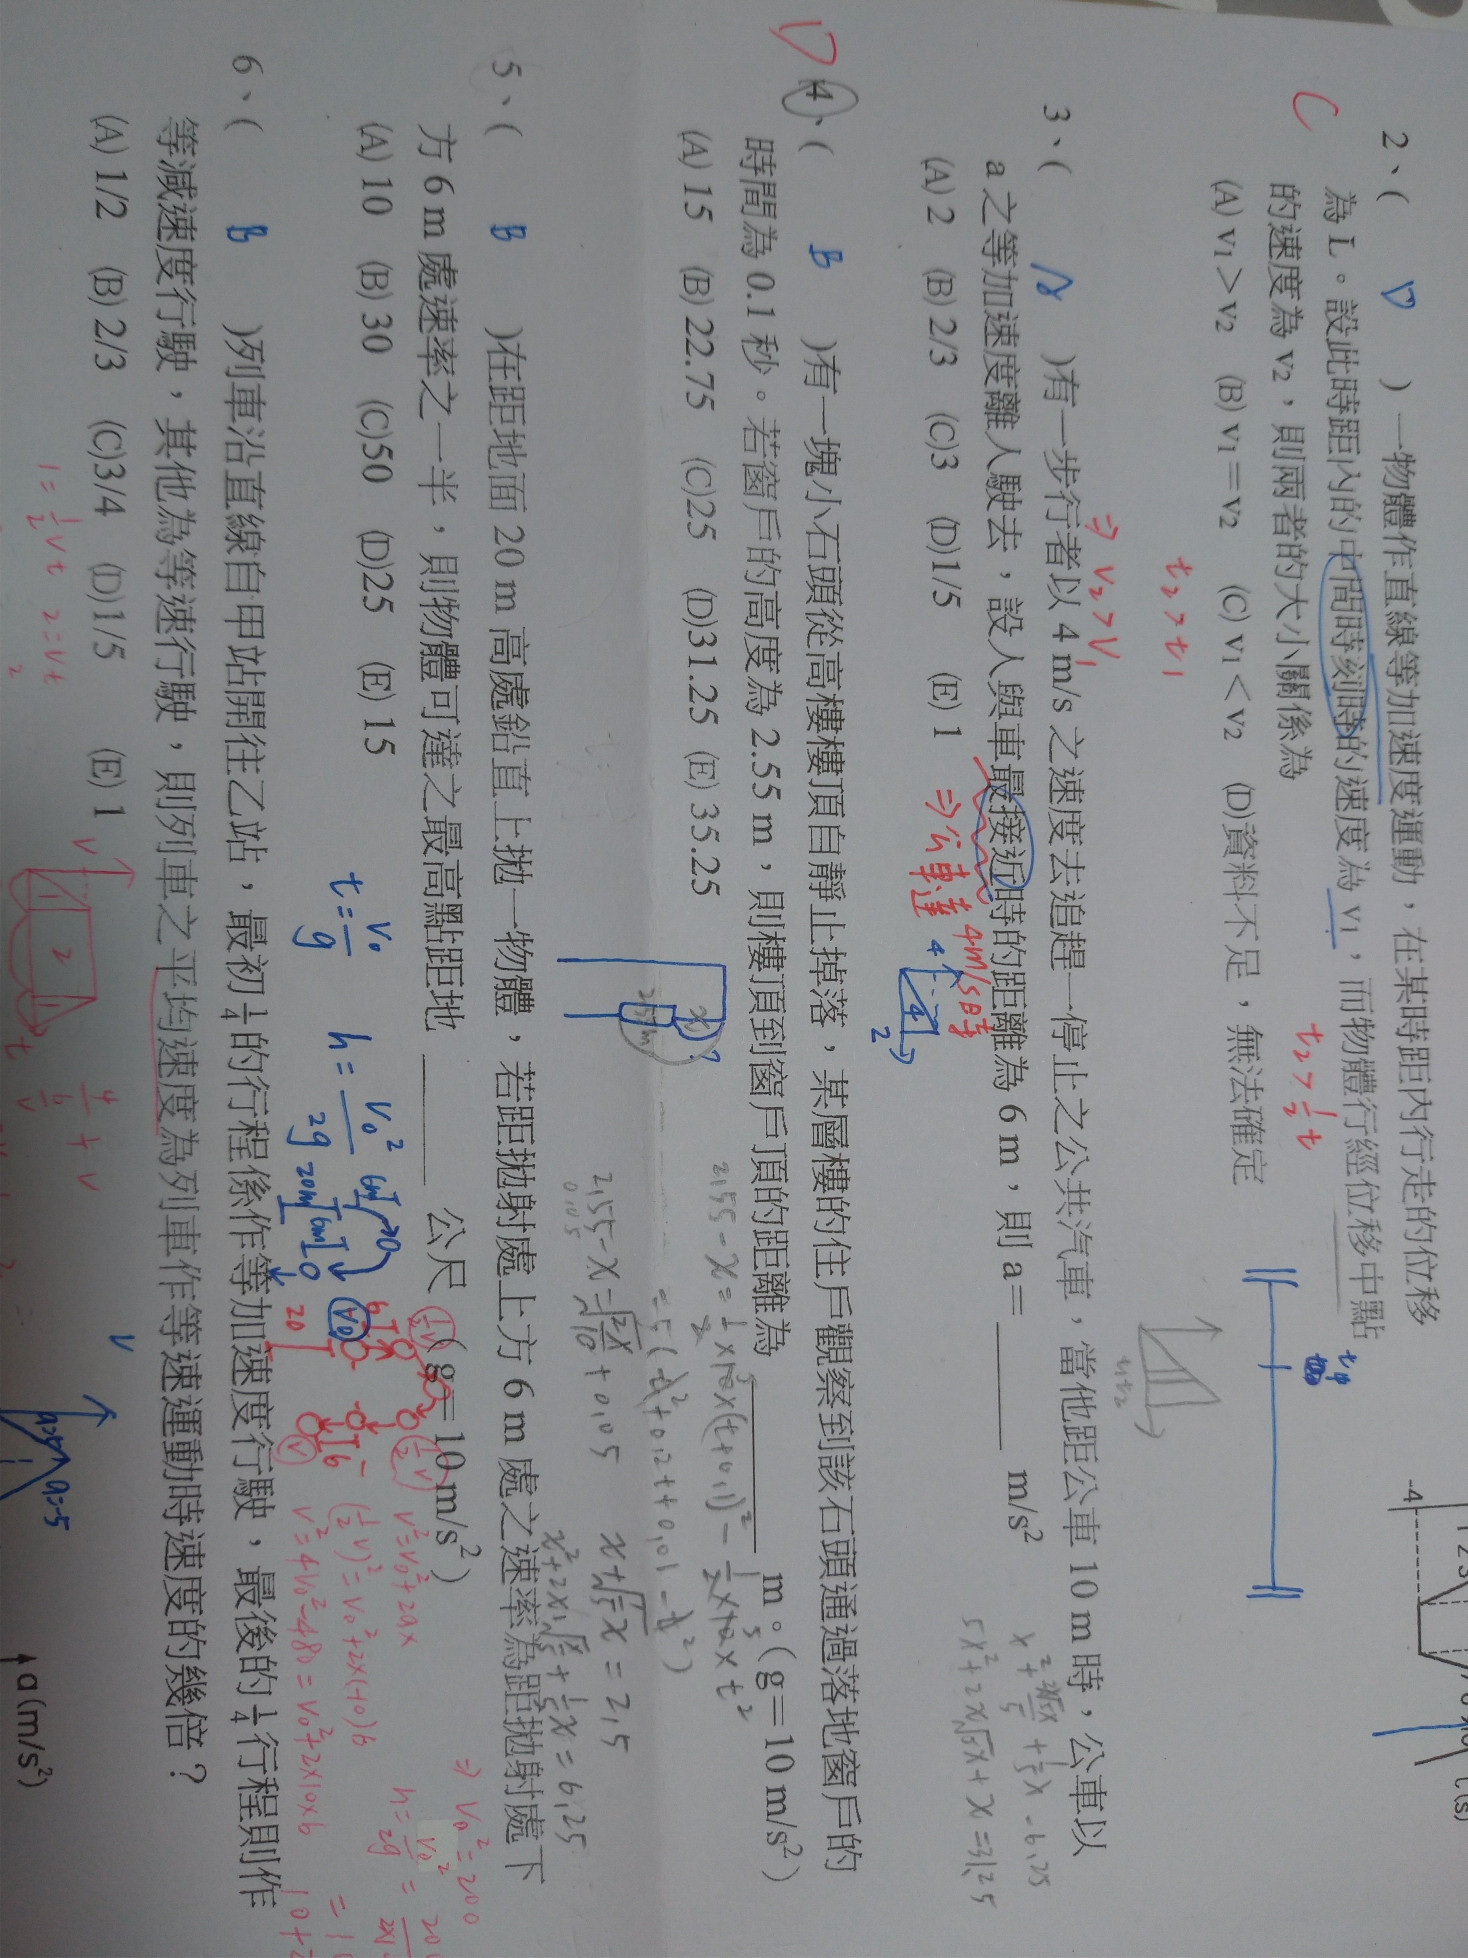 -4
t(s)
2、( D )一物體作直線等加速度運動，在某時距內行走的位移
為 L。設此時距內的中間時刻時的速度為 v₁，而物體行經位移中點
的速度為 v₂，則兩者的大小關係為
(A) v₁＞v₂ (B) v₁＝v₂ (C) v₁＜v₂ (D)資料不足，無法確定
C
t₂ > ½ t
t₂ > t₁
⇒ v₂ > v₁
3、( )有一步行者以 4 m/s 之速度去追趕一停止之公共汽車，當他距公車 10 m 時，公車以
a 之等加速度離人駛去，設人與車最接近時的距離為 6 m，則 a＝ m/s²
(A) 2 (B) 2/3 (C)3 (D)1/5 (E) 1
⇒公車達 4m/s時
4
4
2
5x²+2x√5x+x=31.25
D
4、( B )有一塊小石頭從高樓樓頂自靜止掉落，某層樓的住戶觀察到該石頭通過落地窗戶的
時間為 0.1 秒。若窗戶的高度為 2.55 m，則樓頂到窗戶頂的距離為 m。(g＝10 m/s²)
(A) 15 (B) 22.75 (C)25 (D)31.25 (E) 35.25
x?
2.55-x=½×10×(t+0.1)²-½×10×t²
=5(t²+0.2t+0.01-t²)
x+√⅕x=2.5
5、( B )在距地面 20 m 高處鉛直上拋一物體，若距拋射處上方 6 m 處之速率為距拋射處下
方 6 m 處速率之一半，則物體可達之最高點距地 公尺 (g＝10 m/s²)
(A) 10 (B) 30 (C)50 (D)25 (E) 15
t=v₀/g h=v₀²/2g
20m
6m
v₀
20
v²=v₀²+2ax
(½v)²=v₀²+2×(-10)6
v²=4v₀²-480=v₀²+2×10×6
⇒ v₀²=200
6、( B )列車沿直線自甲站開往乙站，最初 ¼ 的行程係作等加速度行駛，最後的 ¼ 行程則作
等減速度行駛，其他為等速行駛，則列車之平均速度為列車作等速運動時速度的幾倍？
(A) 1/2 (B) 2/3 (C)3/4 (D)1/5 (E) 1
1=½vt 2=vt
v
2
t
v
a=-5
a(m/s²)